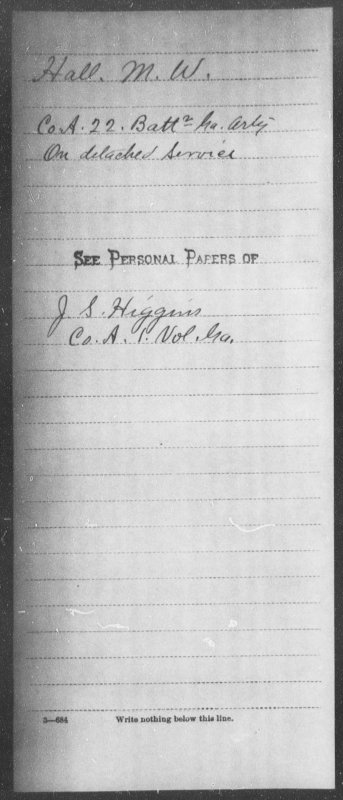 Hall. M. W.
Co. A. 22. Battn Ga. Arty
On detached Service
SEE PERSONAL PAPERS OF
J. S. Higgins
Co. A. 1. Vol. Ga.
3—684 Write nothing below this line.